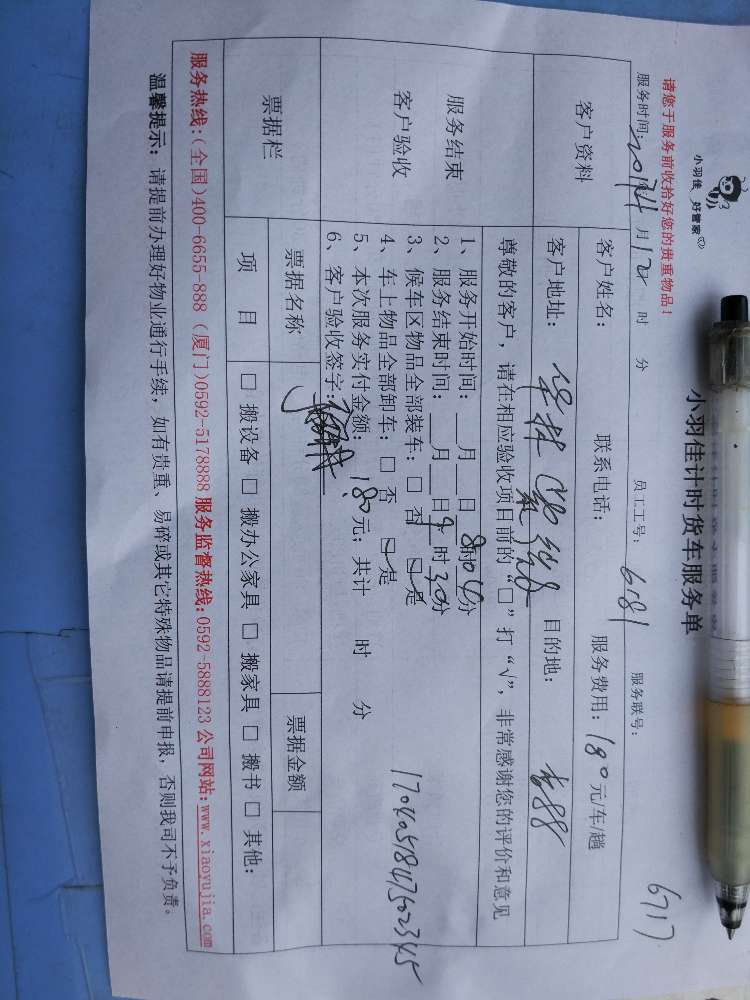 小羽佳 好管家
小羽佳计时货车服务单
6717
请您于服务前收拾好您的贵重物品!
服务时间: 月 时 分 员工工号: 6181 服务联号:
客户资料
客户姓名: 联系电话: 服务费用: 180元/车/趟
客户地址: 目的地:
服务结束
客户验收
尊敬的客户，请在相应验收项目前的“□”打“√”，非常感谢您的评价和意见
1、服务开始时间:___月___日 8时04分
2、服务结束时间:___月___日 9时30分
3、候车区物品全部装车: □ 否 □ 是
4、车上物品全部卸车: □ 否 □ 是
5、本次服务实付金额: 180元; 共计 时 分
6、客户验收签字:
1704051847502345
票据栏
票据名称 票据金额
项 目 □ 搬设备 □ 搬办公家具 □ 搬家具 □ 搬书 □ 其他:
服务热线:(全国)400-6655-888 (厦门)0592-5178888 服务监督热线:0592-5888123 公司网站:www.xiaoyujia.com
温馨提示: 请提前办理好物业通行手续，如有贵重、易碎或其它特殊物品请提前申报，否则我司不予负责。